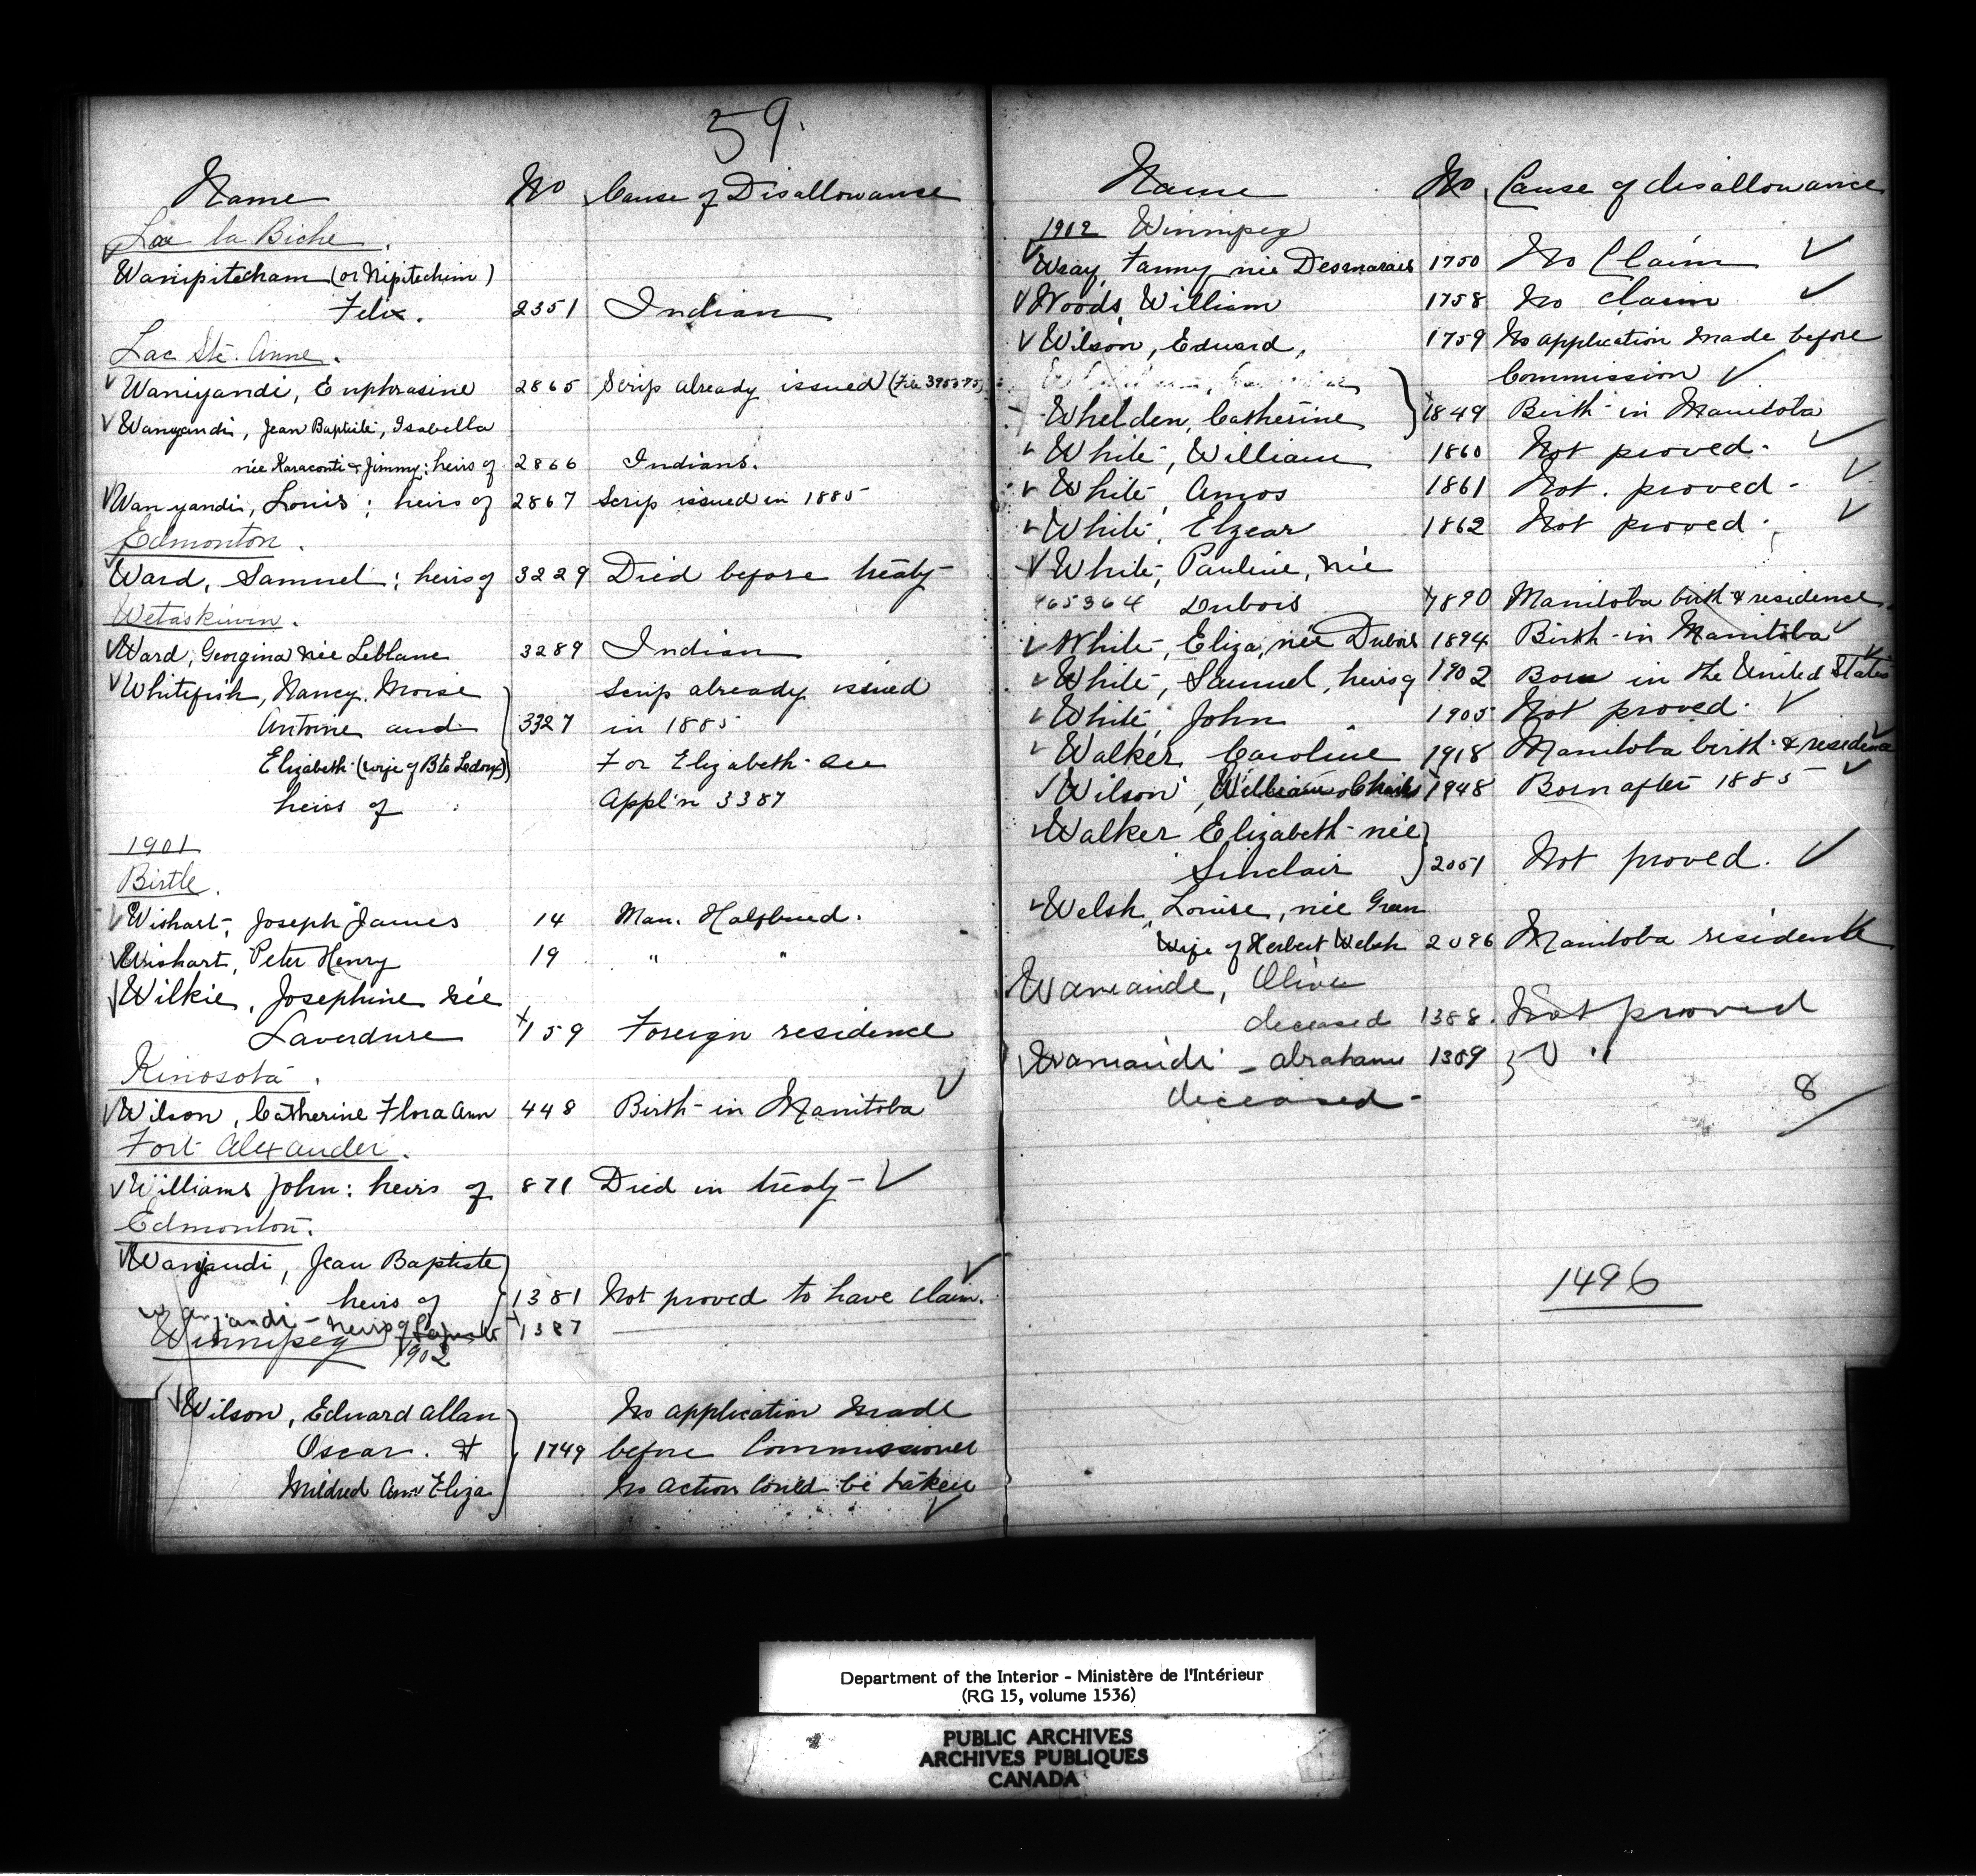 59.
Name No Cause of Disallowance
Lac la Biche.
Wanipitecham (or Nipitechim)
Felix. 2351 Indian
Lac Ste. Anne.
Waniyandi, Euphrasine 2865 Scrip already issued (File
Wanyandi, Jean Baptiste, Isabella
née Karaconti & Jimmy: heirs of 2866 Indians.
Wanyandi, Louis; heirs of 2867 Scrip issued in 1885
Edmonton.
Ward, Samuel: heirs of 3229 Died before treaty
Wetaskiwin.
Ward, Georgina née Leblanc 3289 Indian
Whitefish, Nancy, Moise Scrip already issued
Antoine and 3327 in 1885
Elizabeth (wife of Bte Ledoux) For Elizabeth see
heirs of Appl'n 3387
1901
Birtle.
Wishart, Joseph James 14 Man. Halfbreed.
Wishart, Peter Henry 19 " "
Wilkie, Josephine née
Laverdure 159 Foreign residence
Kinosota.
Wilson, Catherine Flora Ann 448 Birth in Manitoba
Fort Alexander.
Williams John: heirs of 871 Died in treaty
Edmonton.
Wanyandi, Jean Baptiste
heirs of 1381 Not proved to have claim.
Wanyandi - heirs of 1387
Winnipeg 1902
Wilson, Edward Allan No application made
Oscar. & 1749 before Commissioner
Mildred Ann Eliza No action could be taken
Name No Cause of disallowance
1902 Winnipeg
Wray, Fanny née Desmarais 1750 No Claim
Woods, William 1758 No claim
Wilson, Edward, 1759 No application made before
Commission
Whelden, Catherine 1849 Birth in Manitoba
White, William 1860 Not proved.
White, Amos 1861 Not. proved -
White, Elzear 1862 Not proved.
White, Pauline, née
465364 Dubois 1890 Manitoba birth & residence.
White, Eliza, née Dubois 1894 Birth in Manitoba
White, Samuel, heirs of 1902 Born in the United States
White, John 1905 Not proved.
Walker Caroline 1918 Manitoba birth & residence
Wilson, William Charles 1948 Born after 1885
Walker Elizabeth née
Sinclair 2051 Not proved.
Welsh, Louise, née Green
Wife of Herbert Welsh 2096 Manitoba residence
Waneande, Olive
deceased 1388. Not proved
Waneandi - Abraham 1389 "
deceased -
8
1496
Department of the Interior - Ministère de l'Intérieur
(RG 15, volume 1536)
PUBLIC ARCHIVES
ARCHIVES PUBLIQUES
CANADA